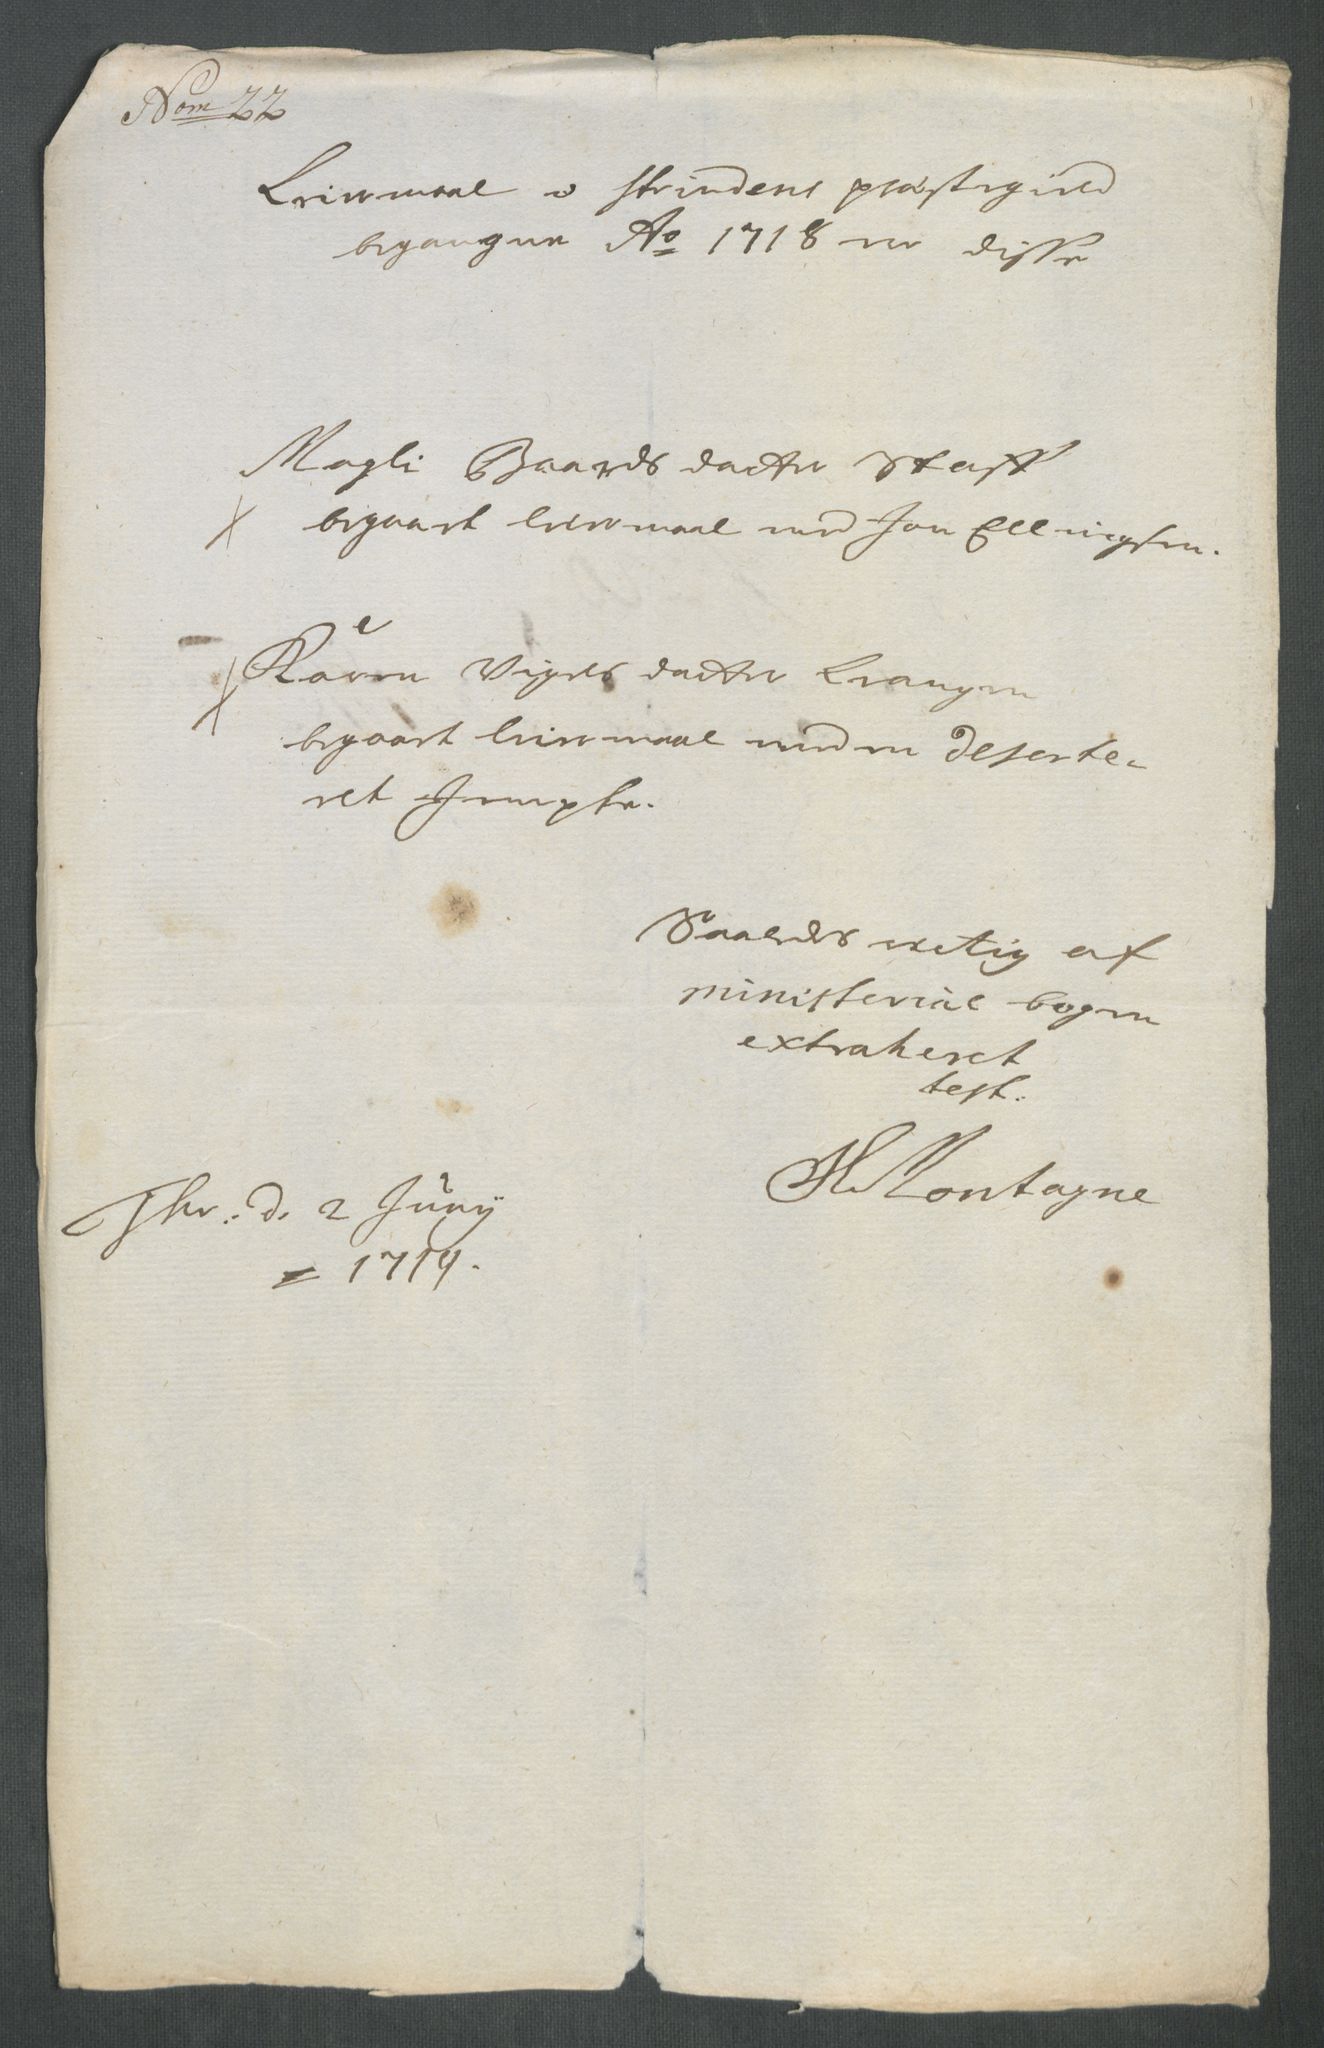 Nom 22
Leiermaal i Strindens præstegield
begangne Ao 1718 er disse
Magli Baards datter
begaaet leiermaal med Jon Ellingsen.
Karen datter Leangen
begaaet leiermaal med en deserte-
ret
Saaledes retig af
ministerial bogen
extraheret
test.
H. Montagne
Thr: d. 2 Junij
1719.